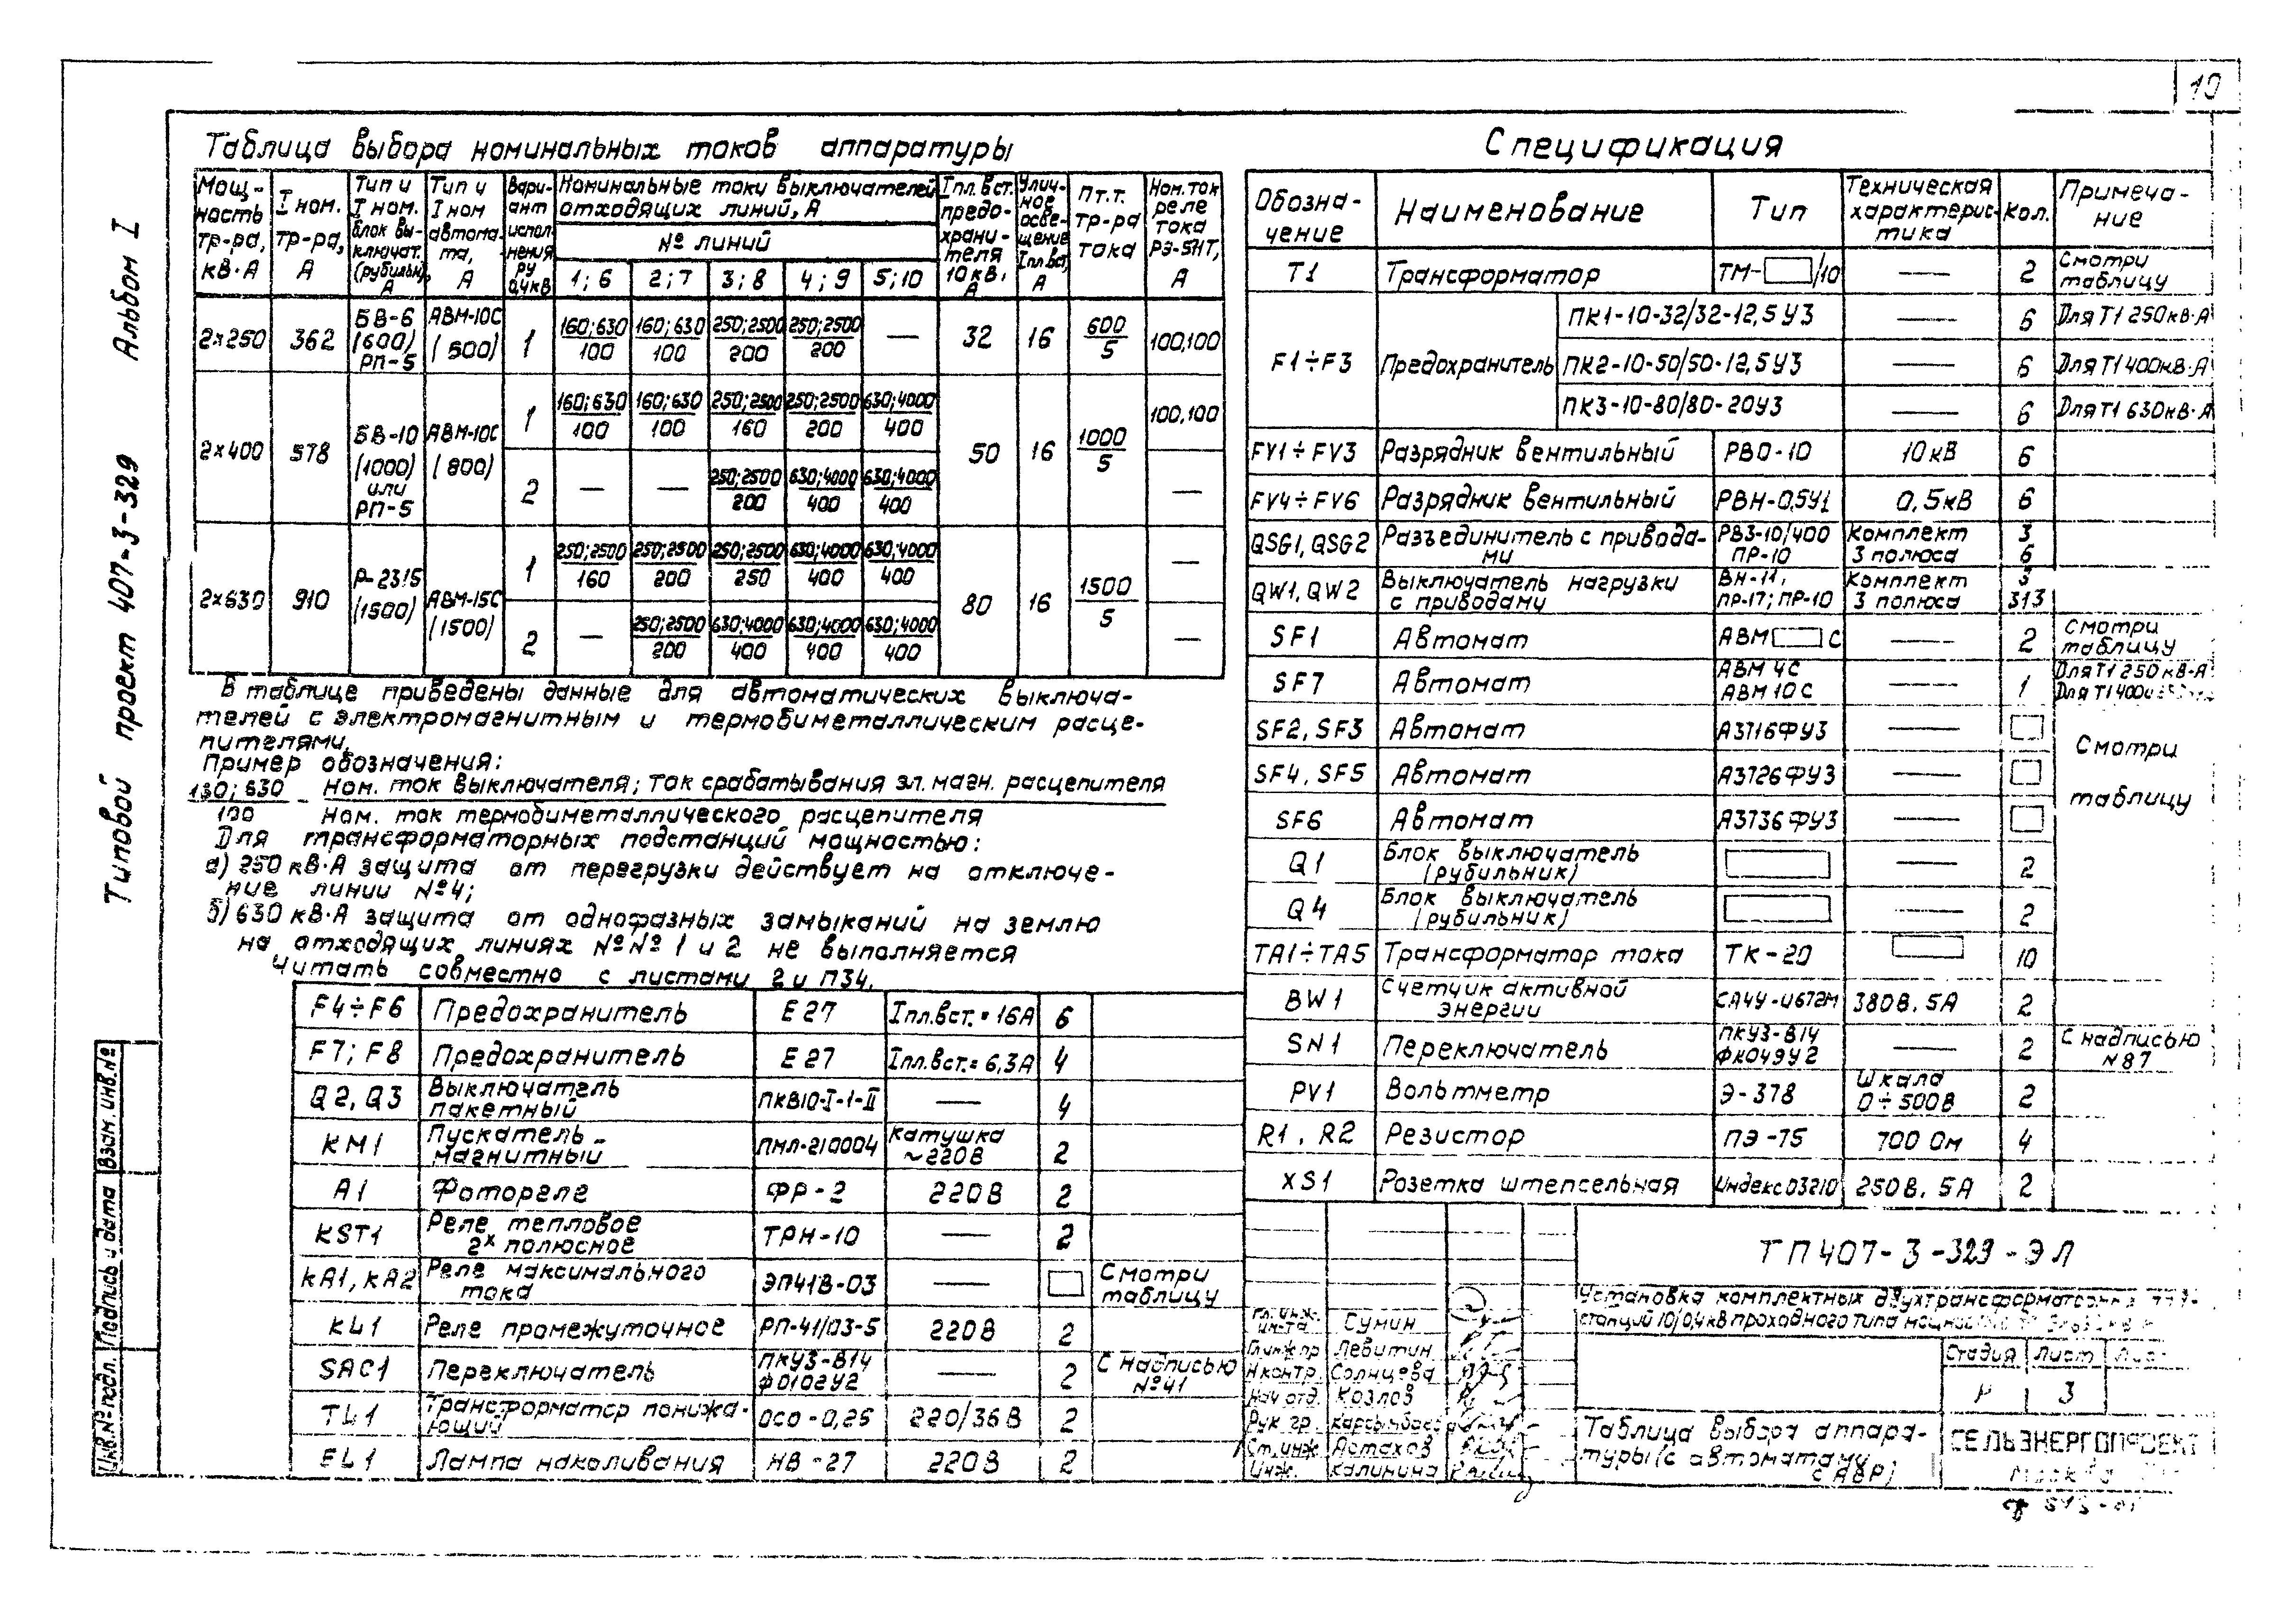 10
Альбом I
Типовой проект 407-3-329
Взам. инв.№
Подпись и дата
Инв.№ подл.
Таблица выбора номинальных токов аппаратуры
Мощ-ность тр-ра, кВ·А | I ном. тр-ра, А | Тип и I ном. блок выключат. (рубильн), А | Тип и I ном автома-та, А | Вари-ант испол-нения РУ 0,4кВ | Номинальные токи выключателей отходящих линий, А | Iпл.вст. предо-храни-теля 10кВ, А | Улич-ное осве-щение Iпл.вст, А | Пт.т. тр-ра тока | Ном.ток реле тока РЭ-571Т, А
№ линий
1; 6 | 2; 7 | 3; 8 | 4; 9 | 5; 10
2×250 | 362 | БВ-6 (600) РП-5 | АВМ-10С (500) | 1 | 160;630/100 | 160;630/100 | 250;2500/200 | 250;2500/200 | — | 32 | 16 | 600/5 | 100,100
2×400 | 578 | БВ-10 (1000) или РП-5 | АВМ-10С (800) | 1 | 160;630/100 | 160;630/100 | 250;2500/160 | 250;2500/200 | 630;4000/400 | 50 | 16 | 1000/5 | 100,100
2 | — | — | 250;2500/200 | 630;4000/400 | 630;4000/400 | —
2×630 | 910 | Р-2315 (1500) | АВМ-15С (1500) | 1 | 250;2500/160 | 250;2500/200 | 250;2500/250 | 630;4000/400 | 630;4000/400 | 80 | 16 | 1500/5 | —
2 | — | 250;2500/200 | 630;4000/400 | 630;4000/400 | 630;4000/400 | —
В таблице приведены данные для автоматических выключа-
телей с электромагнитным и термобиметаллическим расце-
пителями.
Пример обозначения:
130; 630 Ном. ток выключателя; Ток срабатывания эл. магн. расцепителя
100 Ном. ток термобиметаллического расцепителя
Для трансформаторных подстанций мощностью:
а) 250 кВ·А защита от перегрузки действует на отключе-
ние линии №4;
б) 630 кВ·А защита от однофазных замыканий на землю
на отходящих линиях №№ 1 и 2 не выполняется
Читать совместно с листами 2 и П34.
F4÷F6 | Предохранитель | Е27 | Iпл.вст. = 16А | 6
F7; F8 | Предохранитель | Е27 | Iпл.вст.= 6,3А | 4
Q2, Q3 | Выключатель пакетный | ПКВ10-I-1-II | — | 4
КМ1 | Пускатель магнитный | ПМЛ-210004 | Катушка ~220В | 2
А1 | Фотореле | ФР-2 | 220В | 2
KST1 | Реле тепловое 2х полюсное | ТРН-10 | — | 2
КА1, КА2 | Реле максимального тока | ЭП41В-03 | — | Смотри таблицу
KL1 | Реле промежуточное | РП-41/03-5 | 220В | 2
SAC1 | Переключатель | ПКУ3-В14 Ф0102У2 | — | 2 | С надписью №41
TL1 | Трансформатор понижа-ющий | ОСО-0,25 | 220/36В | 2
EL1 | Лампа накаливания | НВ-27 | 220В | 2
Спецификация
Обозна-чение | Наименование | Тип | Техническая характерис-тика | Кол. | Примеча-ние
Т1 | Трансформатор | ТМ- /10 | — | 2 | Смотри таблицу
F1÷F3 | Предохранитель | ПК1-10-32/32-12,5 У3 | — | 6 | Для Т1 250кВ·А
ПК2-10-50/50-12,5 У3 | — | 6 | Для Т1 400кВ·А
ПК3-10-80/80-20У3 | — | 6 | Для Т1 630кВ·А
FV1÷FV3 | Разрядник вентильный | РВО-10 | 10кВ | 6
FV4÷FV6 | Разрядник вентильный | РВН-0,5У1 | 0,5кВ | 6
QSG1, QSG2 | Разъединитель с привода-ми | РВЗ-10/400 ПР-10 | Комплект 3 полюса | 3 6
QW1, QW2 | Выключатель нагрузки с приводами | ВН-11, ПР-17; ПР-10 | Комплект 3 полюса | 3 3|3
SF1 | Автомат | АВМ С | — | 2 | Смотри таблицу
SF7 | Автомат | АВМ 4С АВМ 10С | 1 | Для Т1 250 кВ·А Для Т1 400
SF2, SF3 | Автомат | А3716ФУ3 | —
SF4, SF5 | Автомат | А3726ФУ3 | — | Смотри таблицу
SF6 | Автомат | А3736ФУ3 | —
Q1 | Блок выключатель (рубильник) | — | 2
Q4 | Блок выключатель (рубильник) | — | 2
ТА1÷ТА5 | Трансформатор тока | ТК-20 | 10
BW1 | Счетчик активной энергии | СА4У-И672М | 380В, 5А | 2
SN1 | Переключатель | ПКУ3-В14 ФК049У2 | — | 2 | С надписью №87
PV1 | Вольтметр | Э-378 | Шкала 0÷500В | 2
R1, R2 | Резистор | ПЭ-75 | 700 Ом | 4
XS1 | Розетка штепсельная | Индекс 03210 | 250В, 5А | 2
ТП407-3-329-ЭЛ
Установка комплектных
станций 10/0,4кВ проходного типа
Гл. инж. ин-та Сумин
Гл.инж.пр Левитин
Н.контр. Солнцева
Нач.отд. Козлов
Рук. гр.
Ст.инж. Астахов
Инж. Калинина
Стадия | Лист
Р | 3
Таблица выбора аппара-
туры (с автоматами
с АВР)
СЕЛЬЭНЕРГОПРОЕКТ
Москва